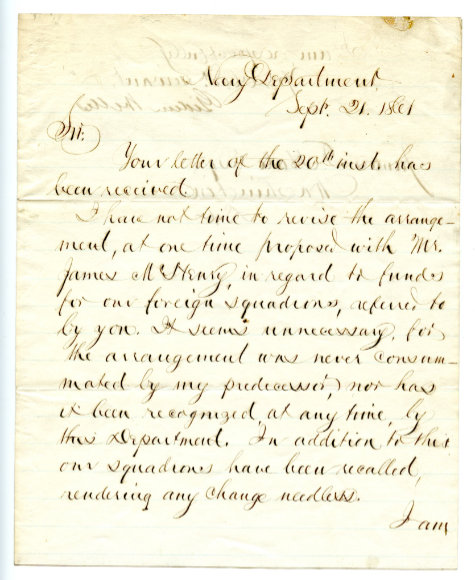 Navy Department,
Sept. 21. 1861
Sir.
Your letter of the 20th inst. has
been received.
I have not time to revise the arrange-
ment, at one time proposed with Mr.
James McHenry, in regard to funds
for our foreign squadrons, referred to
by you. It seems unnecessary, for
the arrangement was never consum-
mated by my predecessor, nor has
it been recognized, at any time, by
this Department. In addition to this
our squadrons have been recalled,
rendering any change needless.
I am